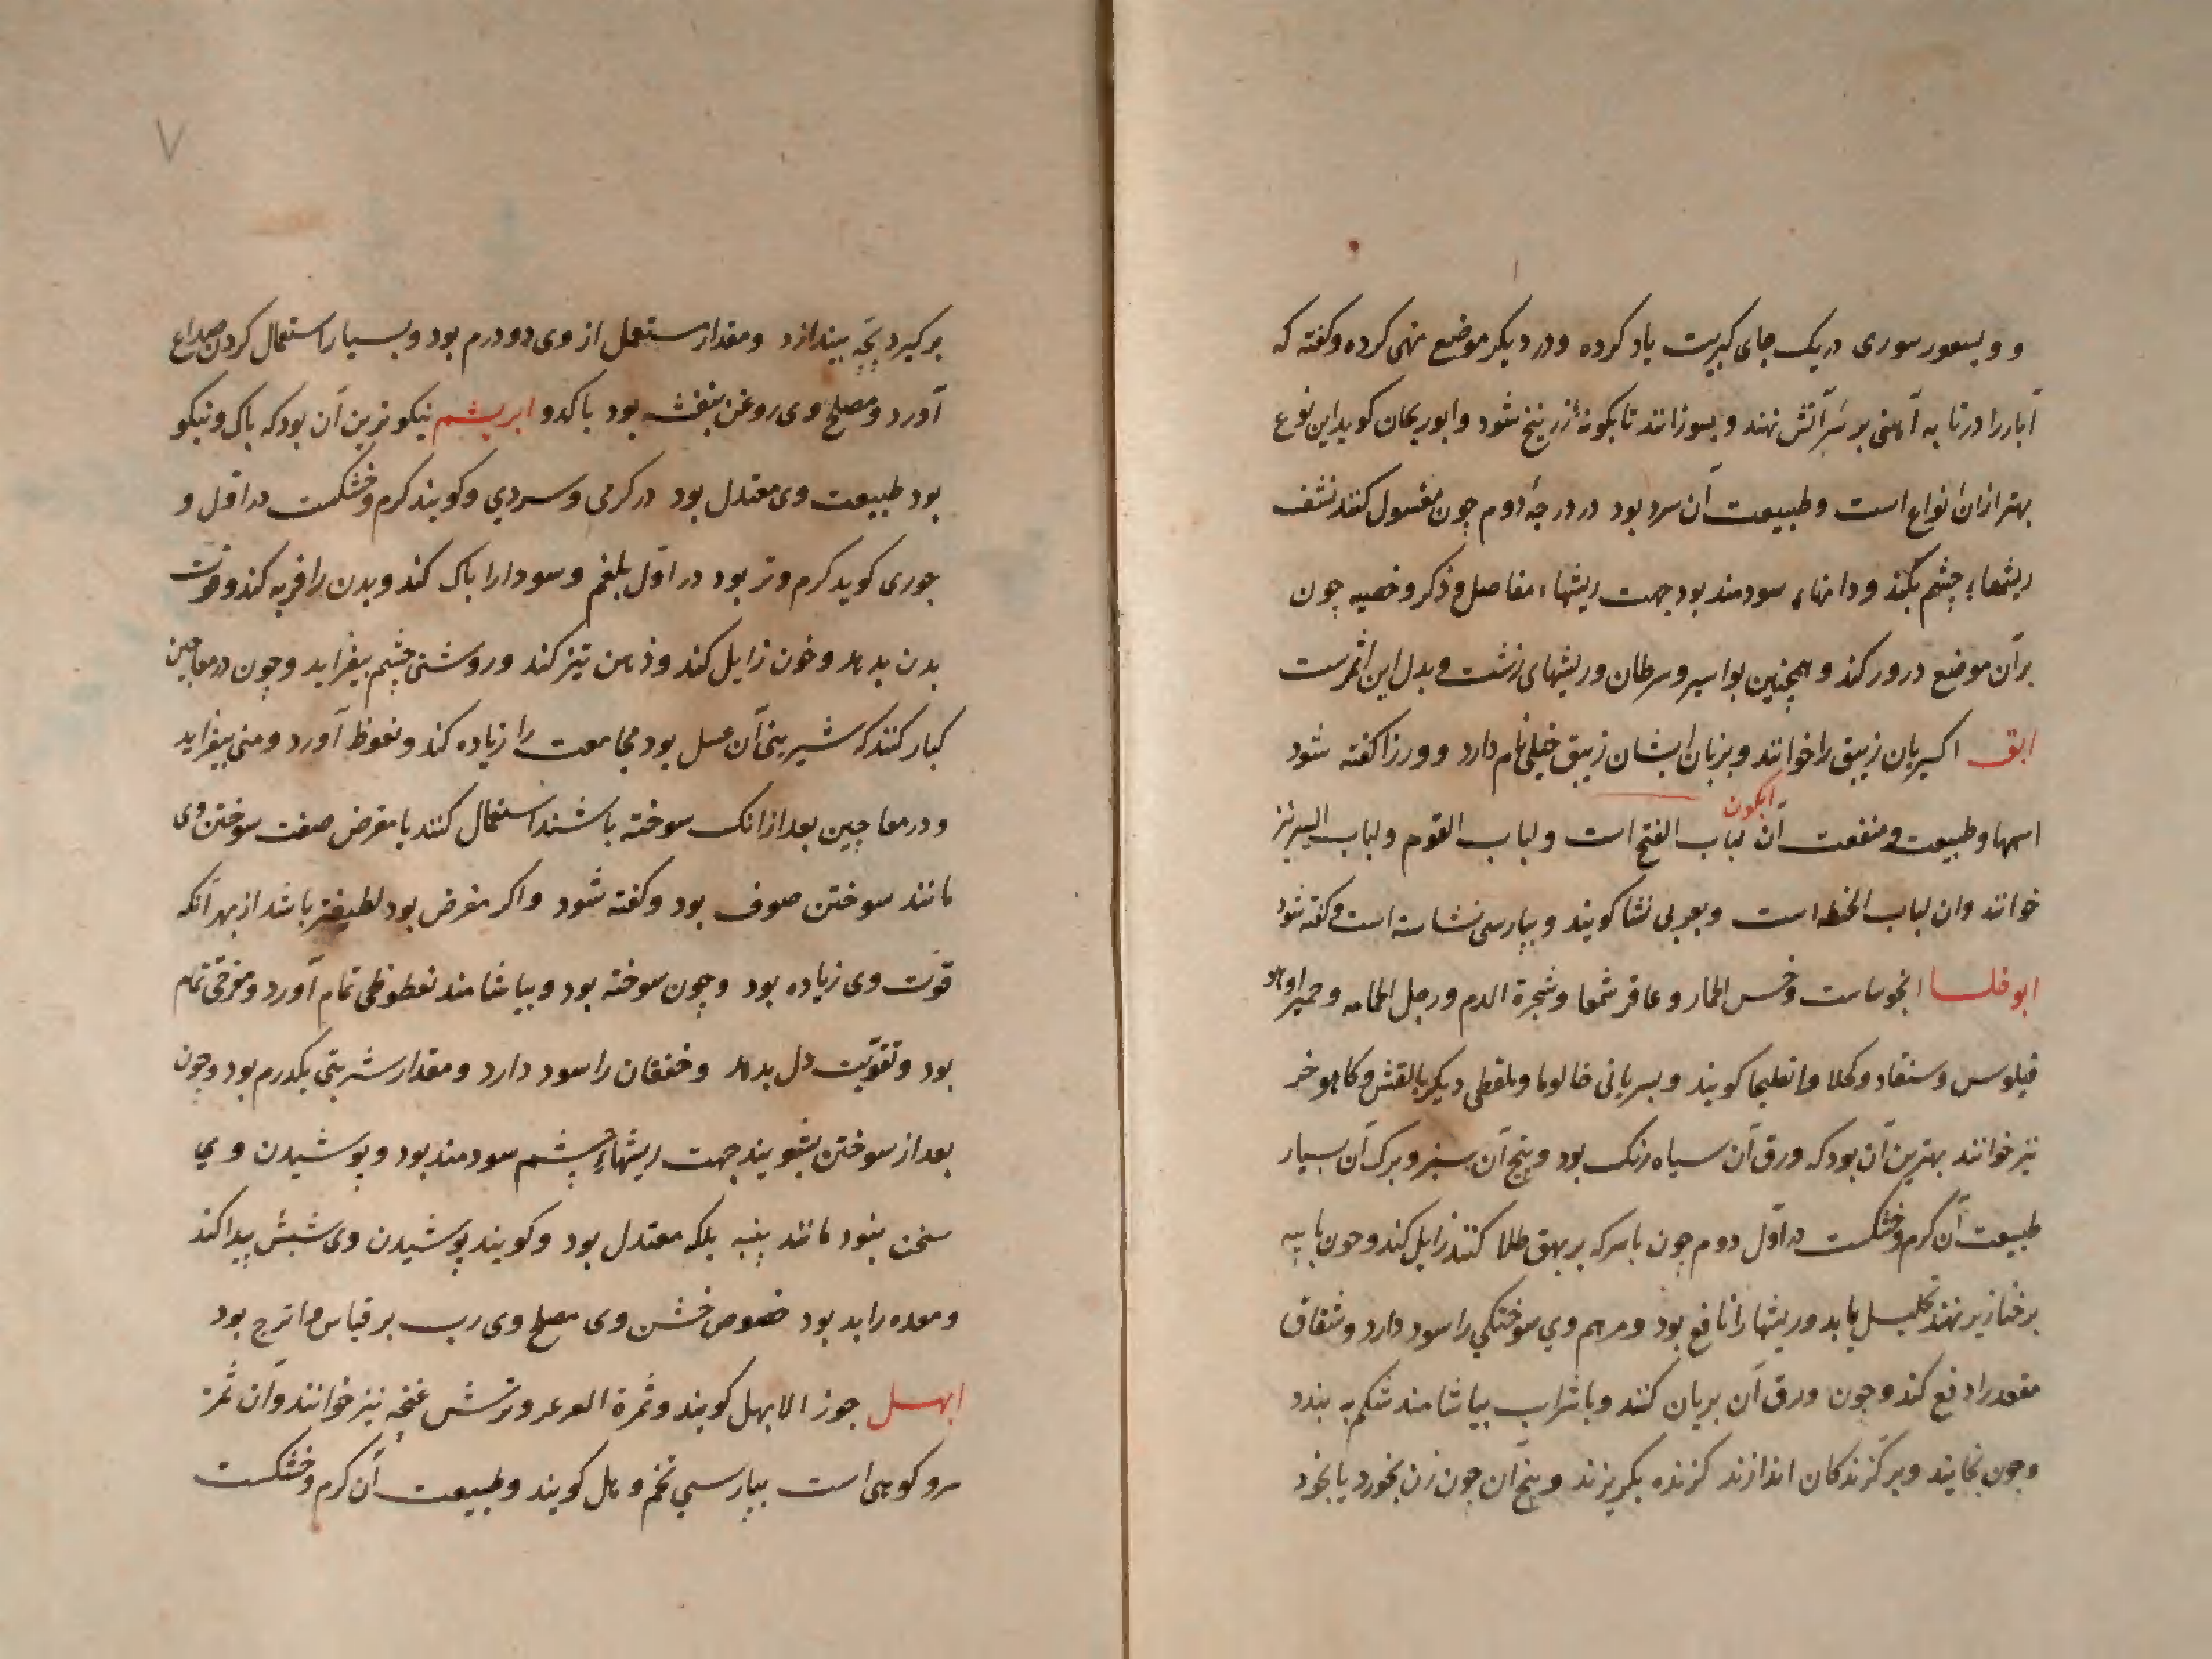 و ویسعور سوری در یک جای کبریت یاد کرده و در دیکر موضع نهی کرده و کفته که
آبار را در تابه آهنی بر سر آتش نهند و بسوزانند تا بکونه زرنیخ شود و ابوریحان کوید این نوع
بهتر از ان انواع است و طبیعت آن سرد بود در درجه دوم چون مغسول کنند نشف
ریشهاء چشم بکند و دانهاء سودمند بود جهت ریشهاء مفاصل و ذکر و خصیه چون
بر آن موضع ذرور کند و همچنین بواسیر و سرطان و ریشهای زشت و بدل این اثمرست
ابق اکسیریان زیبق را خوانند و بزبان ایشان زیبق خیلی نام دارد و ور زا کفته شود
ابکون
اسمها و طبیعت و منفعت آن لباب الفتح است و لباب القوم و لباب البر نیز
خوانند وان لباب الحنطه است و بعربی نشا کویند و بپارسی نشاسته است و کفته شود
ابوخلسا انخوساست و خس الحمار و عاقر شمعا و شجرة الدم و رجل الحمامه و حمیرا و هو
فیلوس و سنقاد و کحلا و انعلیحا کویند و بسریانی خالوما و بلفظی دیکر بالقش و کاهو خر
نیز خوانند بهترین آن بود که ورق آن سیاه رنک بود و بیخ آن سبز و برک آن بسیار
طبیعت آن کرم و خشکست در اول دوم چون با سرکه بر بهق طلا کنند زایل کند و چون با پیه
بر خنازیر نهند تحلیل یابد و ریشها را نافع بود و مرهم وی سوختکی را سود دارد و شقاق
مقعد را دفع کند و چون ورق آن بریان کنند و با شراب بیاشامند شکم به بندد
و چون بخایند و بر کزندکان اندازند کزنده بکریزند و بیخ آن چون زن بخورد یا بخود
بر کیرد بچه بیندازد و مقدار مستعمل از وی دو درم بود و بسیار استعمال کردن صداع
آورد و مصلح وی روغن بنفشه بود با کدو ابریشم نیکوترین آن بود که پاک و نیکو
بود طبیعت وی معتدل بود در کرمی و سردي و کویند کرم و خشکست در اول و
جوری کوید کرم و تر بود در اول بلغم و سودا را پاک کند و بدن را فربه کند و قوت
بدن بدهد و خون زایل کند و ذهن تیز کند و روشنی چشم بیفزاید و چون در معاجین
کبار کنند که شیرینی آن عسل بود مجامعت را زیاده کند و نغوظ آورد و منی بیفزاید
و در معاجین بعد از انک سوخته باشند استعمال کنند یا مقرض صفت سوختن وی
مانند سوختن صوف بود و کفته شود و اکر مقرض بود لطیفتر باشد از بهر آنکه
قوت وی زیاده بود و چون سوخته بود و بیاشامند نعطوظی تمام آورد و مفرقی تمام
بود و تقویت دل بدهد و خفقان را سود دارد و مقدار شربتی یکدرم بود و چون
بعد از سوختن بشویند جهت ریشهاء چشم سودمند بود و پوشیدن وي
سخن بنود مانند پنبه بلکه معتدل بود و کویند پوشیدن وی شپش پیدا کند
و معده را بد بود خصوص خشن وی مصلح وی رب بر قیاس و اترج بود
ابهل جوز الابهل کویند و ثمرة العرعر و ترش غنچه نیز خوانند و آن ثمرة
سرو کوهی است بپارسي تخم وهل کویند و طبیعت آن کرم و خشکست